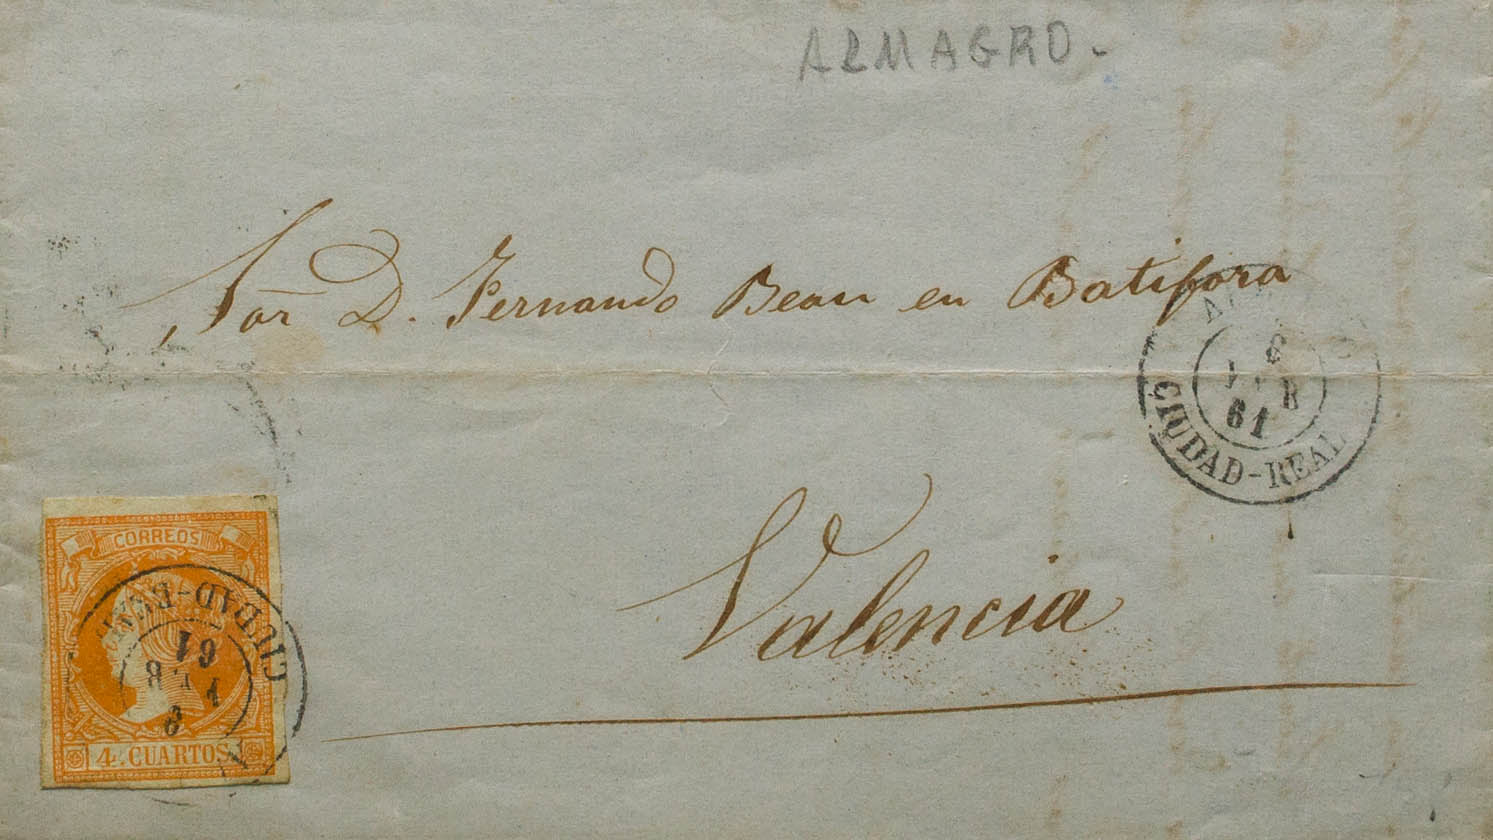 ALMAGRO.
Sor D. Fernando Beau en Batifora
6
61
CIUDAD-REAL
Valencia
CORREOS
CIUDAD-REAL
61
6
4 CUARTOS